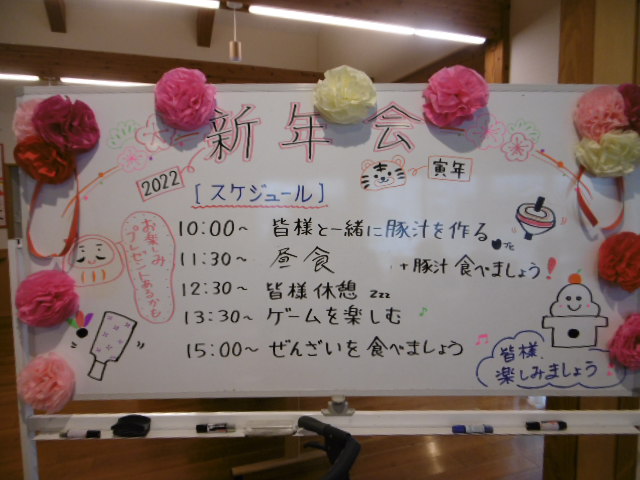 新年会
2022
寅年
[スケジュール]
10:00～ 皆様と一緒に豚汁を作る
11:30～ 昼食 +豚汁 食べましょう!
12:30～ 皆様休憩 zzz
13:30～ ゲームを楽しむ
15:00～ ぜんざいを食べましょう
お楽しみ
プレゼントあるかも
皆様、
楽しみましょう